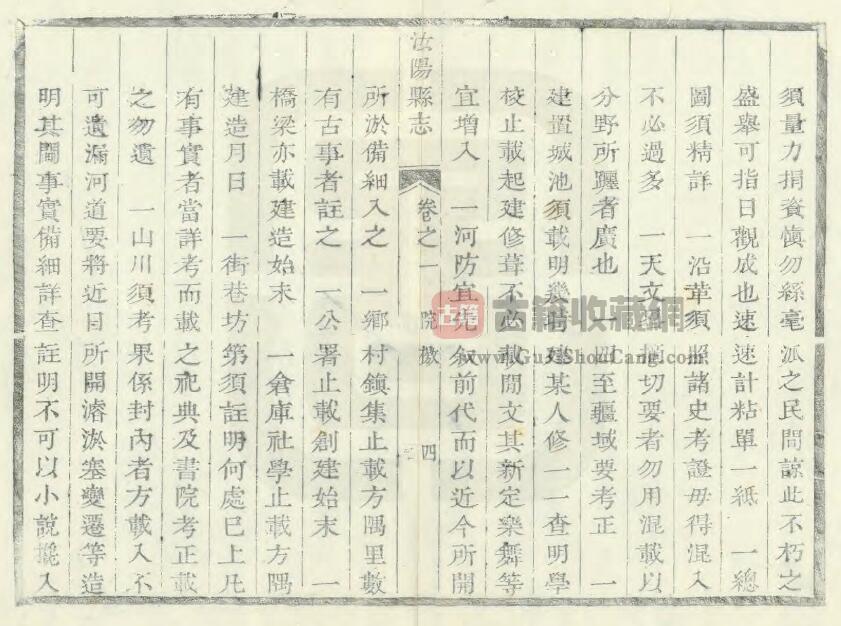 須量力捐資慎勿絲毫派之民間諒此不朽之
盛舉可指日觀成也速速計粘單一紙　一總
圖須精詳　一沿革須照諸史考證毋得混入
不必過多　一天文　切要者勿用混載以
分野所躔者廣也　一四至疆域要考正　一
建置城池須載明幾時建某人修一一查明學
校止載起建修葺不必載閒文其新定樂舞等
宜增入　一河防宜先叙前代而以近今所開
汝陽縣志　卷之一　院檄　四
所淤備細入之　一鄉村鎮集止載方隅里數
有古事者註之　一公署止載創建始末　一
橋梁亦載建造始末　一倉庫社學止載方隅
建造月日　一街巷坊第須註明何處已上凡
有事實者當詳考而載之祀典及書院考正載
之勿遺　一山川須考果係封內者方載入不
可遺漏河道要將近日所開濬淤塞變遷等造
明其間事實備細詳查註明不可以小說擬入
古籍
古籍收藏網
www.GuJiShouCang.com